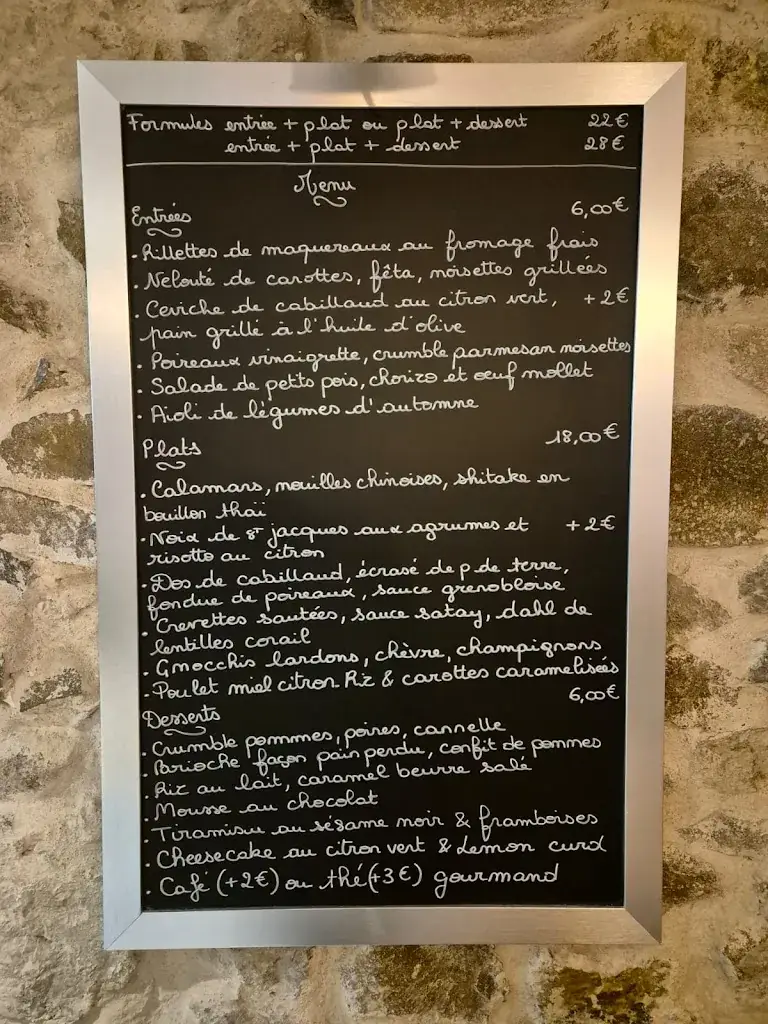 Formules entrée + plat ou plat + dessert 22€
entrée + plat + dessert 28€
Menu
Entrées 6,00€
. Rillettes de maquereaux au fromage frais
. Velouté de carottes, fêta, noisettes grillées
. Ceviche de cabillaud au citron vert, + 2€
pain grillé à l'huile d'olive
. Poireaux vinaigrette, crumble parmesan noisettes
. Salade de petits pois, chorizo et œuf mollet
. Aioli de légumes d'automne
Plats 18,00€
. Calamars, nouilles chinoises, shitake en
bouillon thaï
. Noix de st jacques aux agrumes et + 2€
risotto au citron
. Dos de cabillaud, écrasé de p. de terre,
fondue de poireaux, sauce grenobloise
. Crevettes sautées, sauce satay, dahl de
lentilles corail
. Gnocchis lardons, chèvre, champignons
. Poulet miel citron. Riz & carottes caramelisées
Desserts 6,00€
. Crumble pommes, poires, cannelle
. Brioche façon pain perdu, confit de pommes
. Riz au lait, caramel beurre salé
. Mousse au chocolat
. Tiramisu au sésame noir & framboises
. Cheesecake au citron vert & lemon curd
. Café (+2€) ou thé (+3€) gourmand